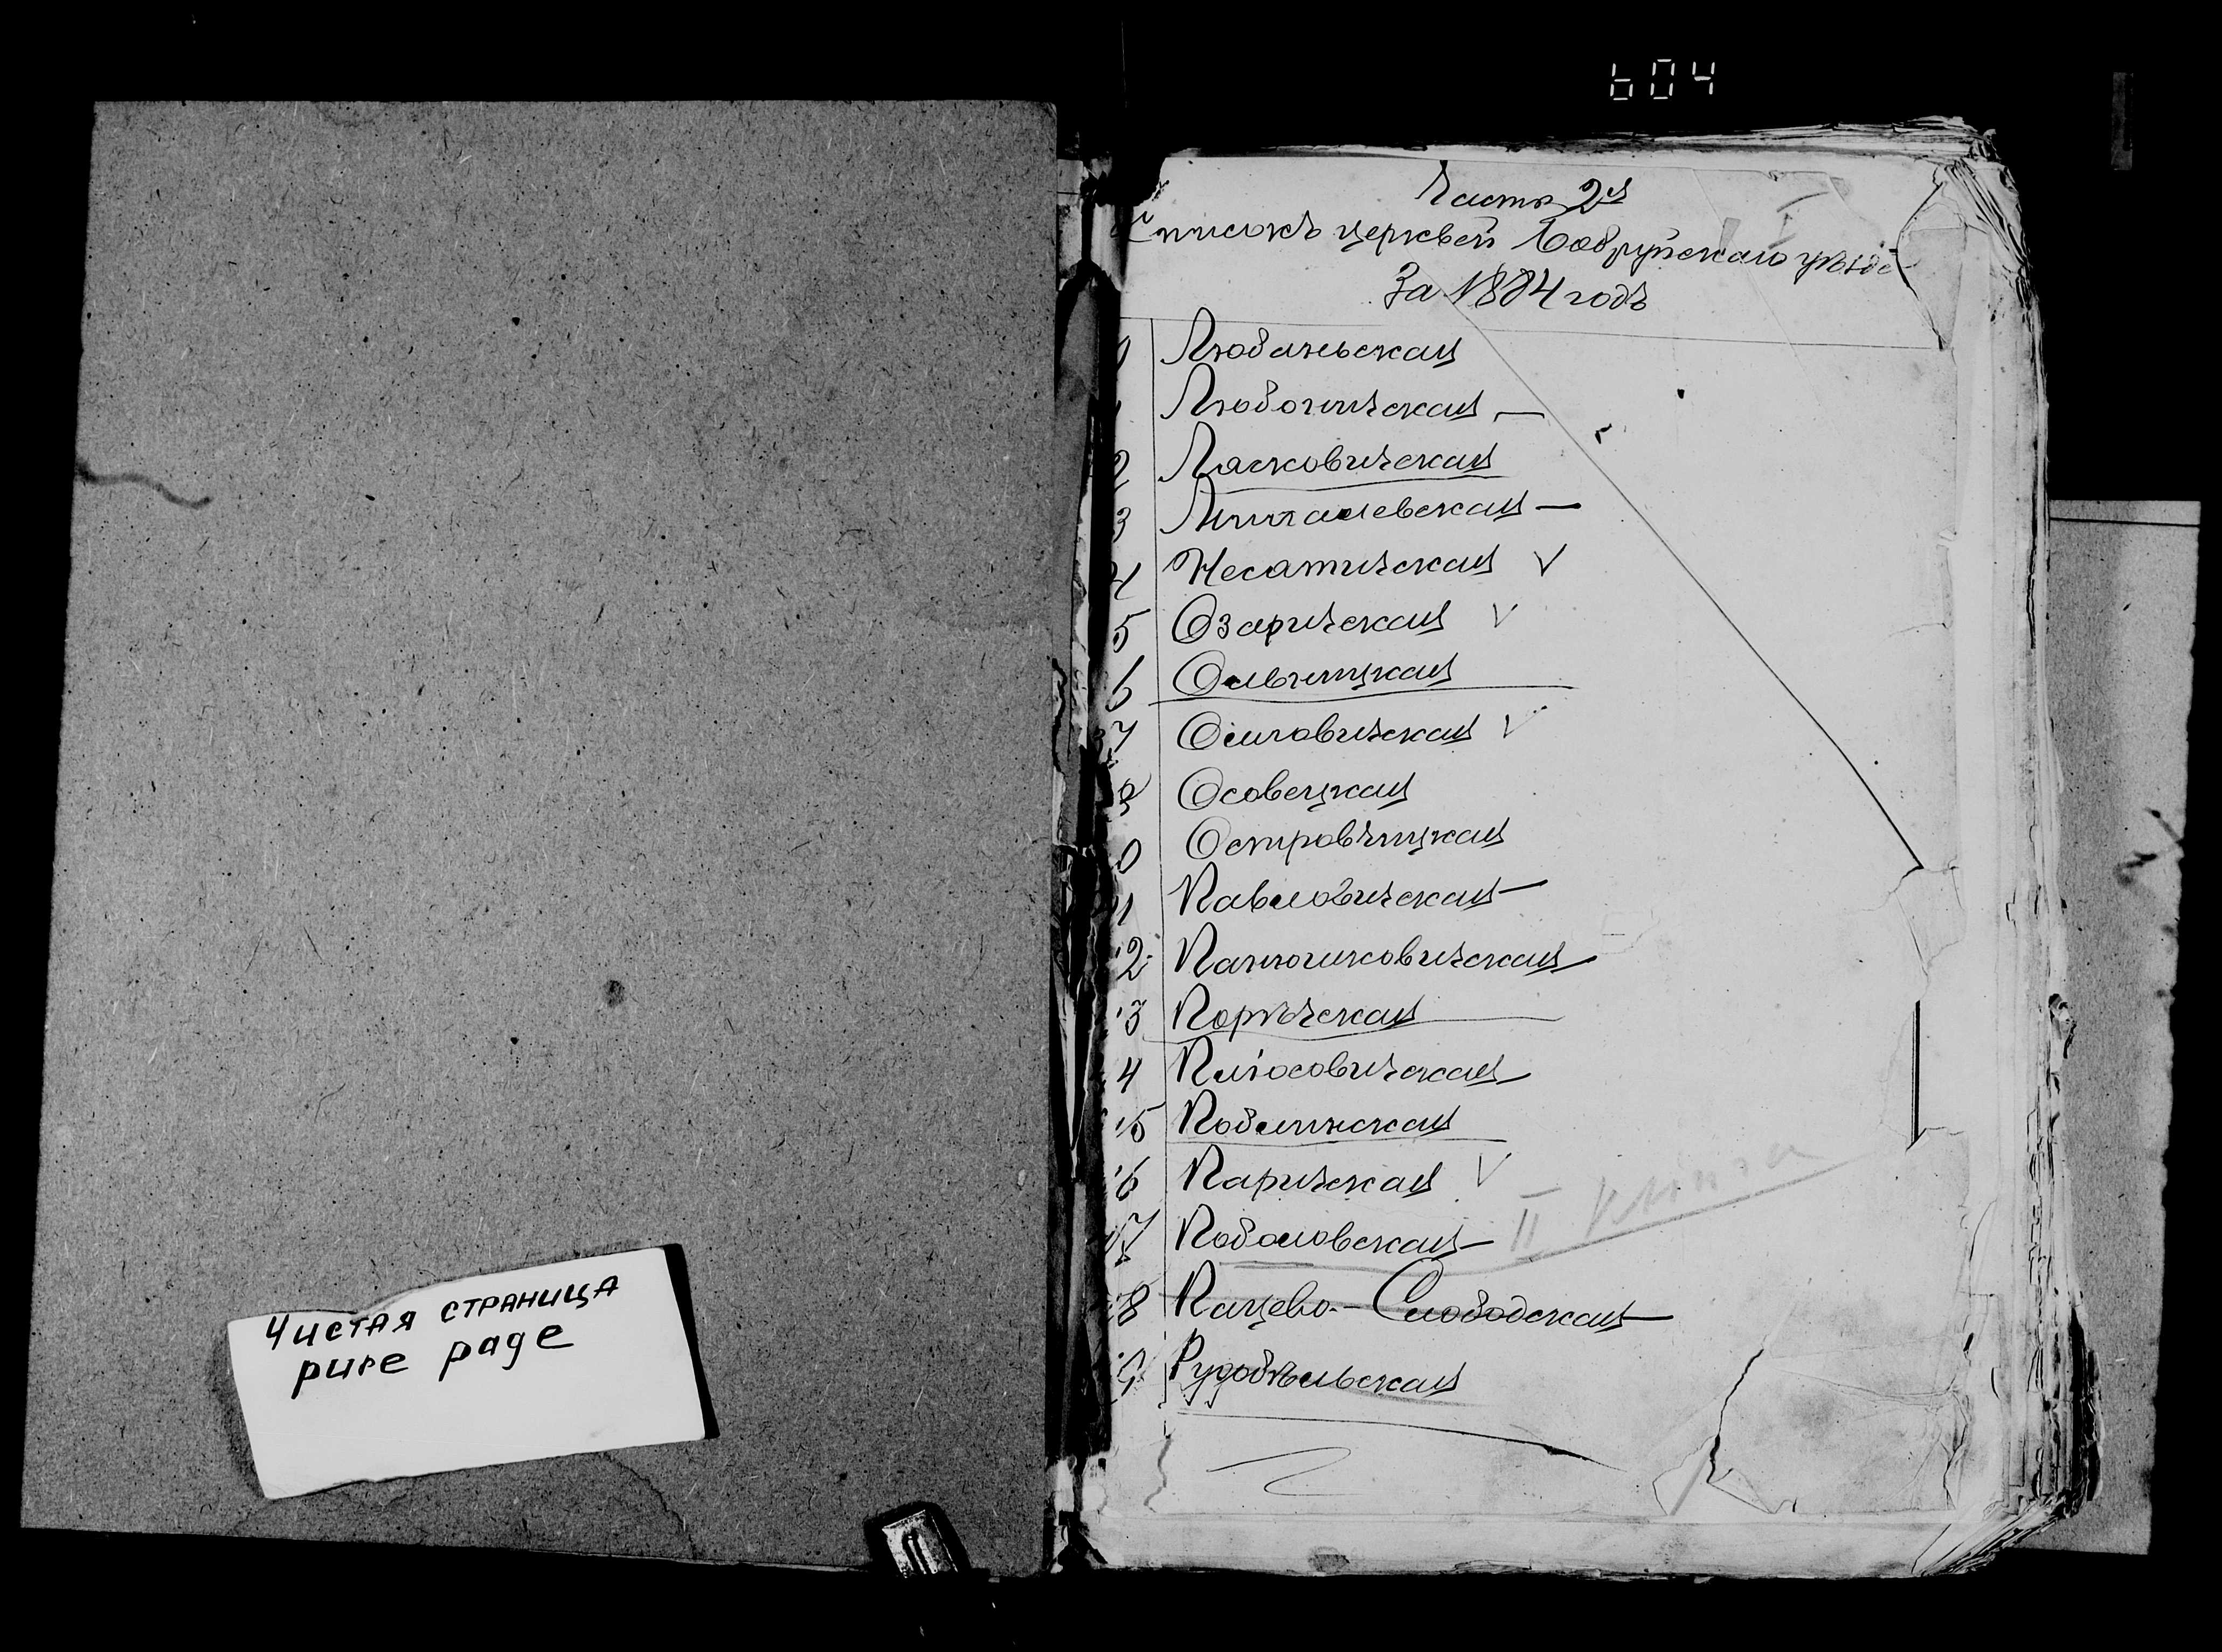 604
Часть 2я
Списокъ церквей Бобруйскаго уѣзда
За 1884 годъ
Любаньская
Любоничская —
2 Ласковичская
3 Липталевская —
4 Несатичская V
5 Озаричская V
6 Ольницкая
7 Осиповичская V
Осовецкая
0 Островчицкая
1 Павловичская —
2 Панюшковичская
3 Порѣчская
4 Плёсовичская
5 Поблинская
6 Паричская V
7 Поболовская —
II книга
8 Пацево-Слободская —
9 Рудобѣльская
Чистая страница
pure page